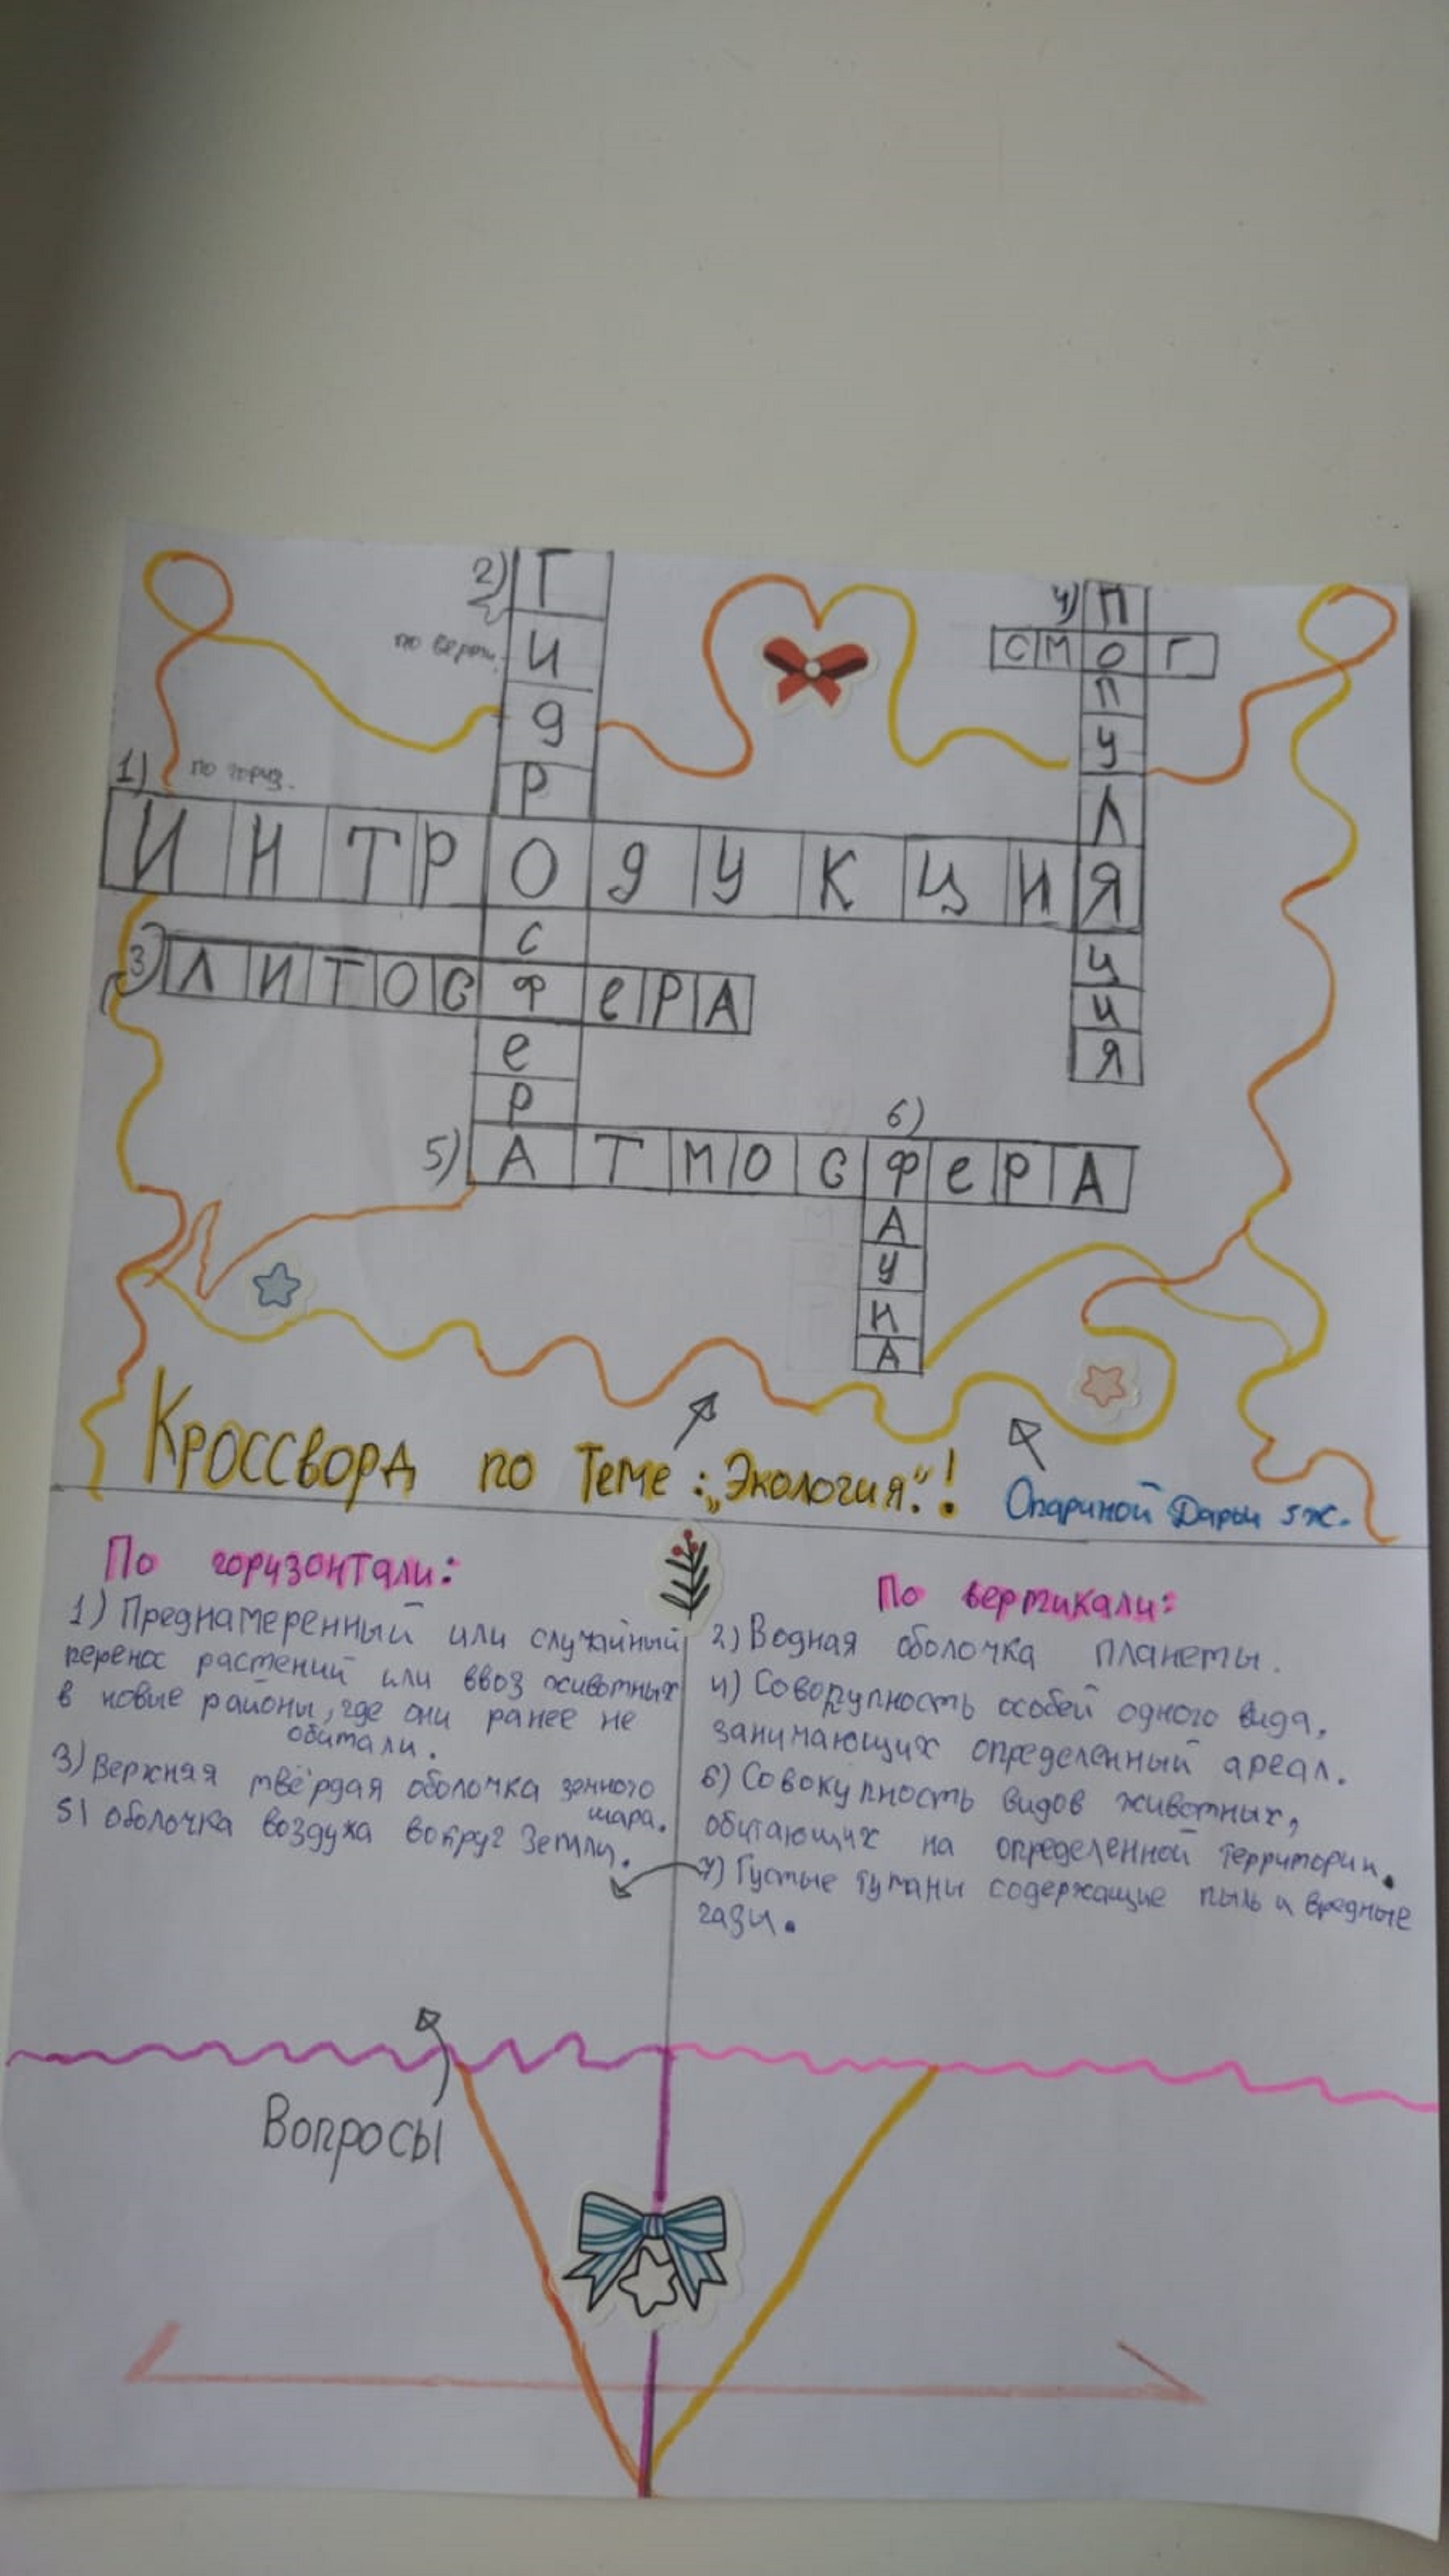 2)
Г
И
по верт.
Д
Р
4)
П
СМОГ
П
У
Л
1) по гориз.
ИНТРОДУКЦИЯ
С
3) ЛИТОСФЕРА
Е
Р
Ц
И
Я
6)
5) АТМОСФЕРА
А
У
Н
А
Кроссворд по Теме: „Экология."!
Опариной Дарьи 5ж.
По горизонтали:
1) Преднамеренный или случайный
перенос растений или ввоз животных
в новые районы, где они ранее не
обитали.
3) Верхняя твёрдая оболочка земного
шара.
5) оболочка воздуха вокруг Земли.
По вертикали:
2) Водная оболочка планеты.
4) Совокупность особей одного вида,
занимающих определенный ареал.
6) Совокупность видов животных,
обитающих на определенной территории.
7) Густые туманы содержащие пыль и вредные
газы.
Вопросы